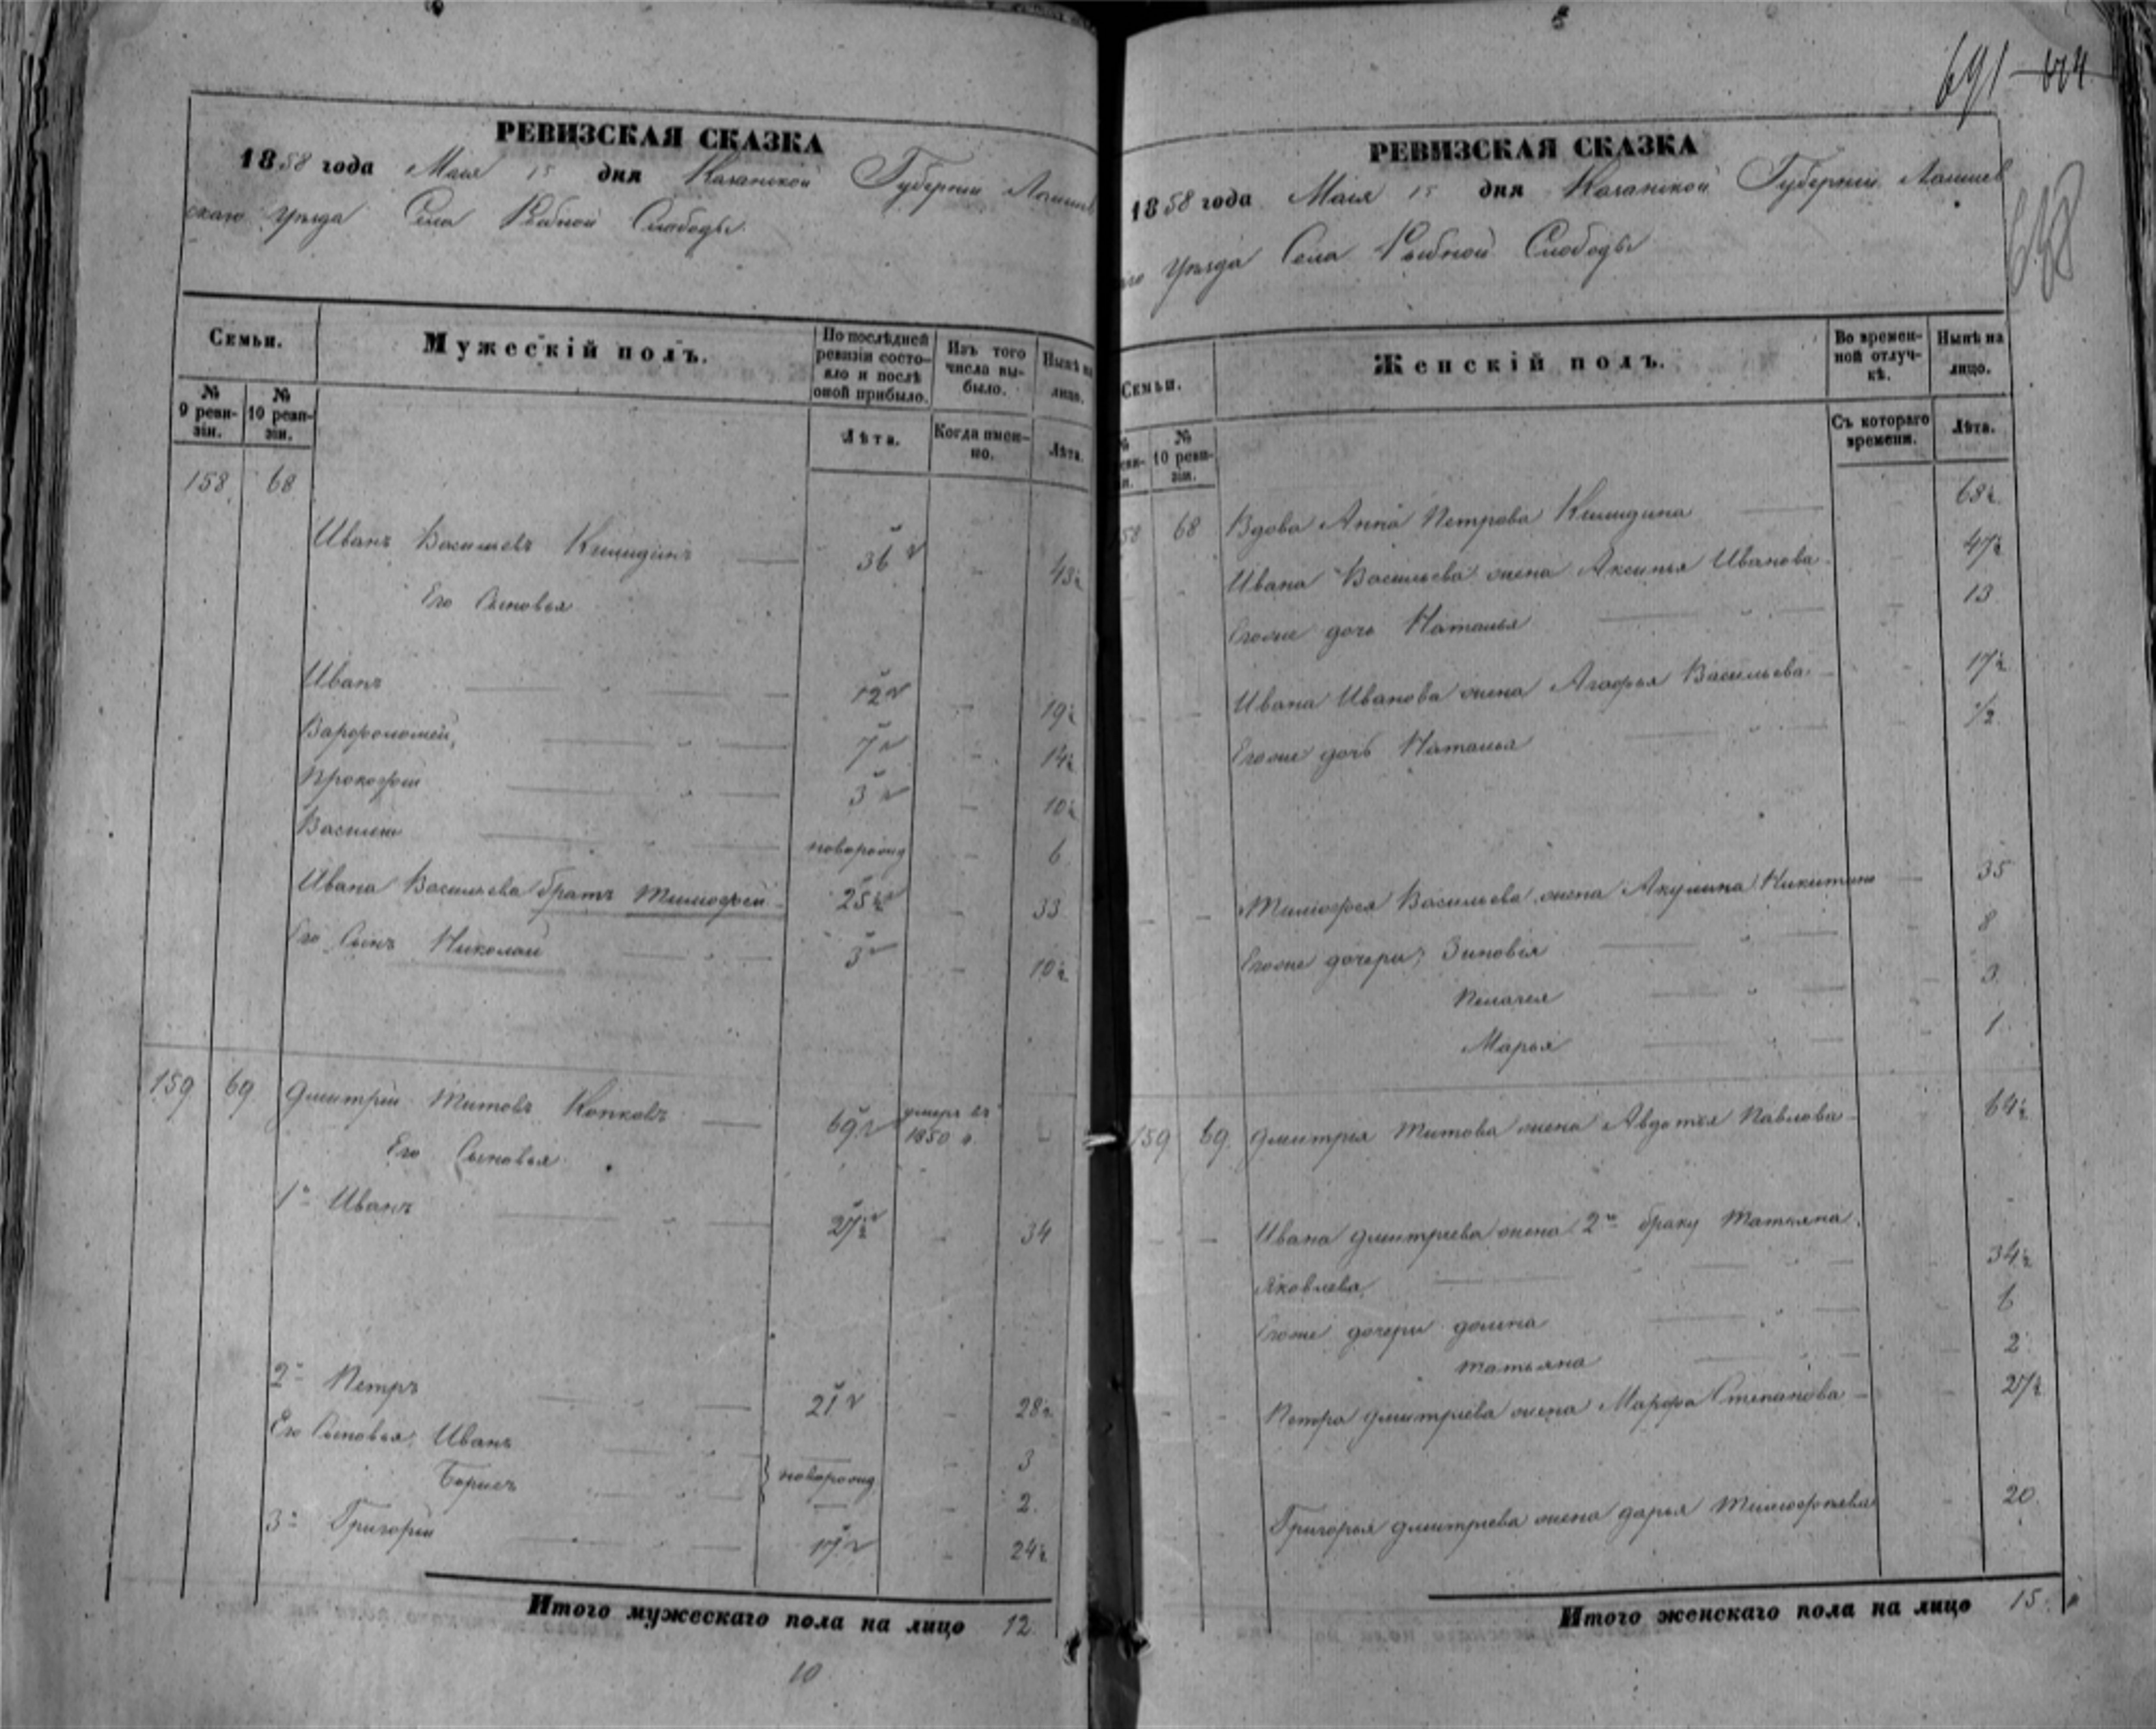 691 664
РЕВИЗСКАЯ СКАЗКА
1858 года Маія 15 дня Казанской Губерніи Лаишев
скаго Уѣзда Села Рыбной Слободы
Семьи.
Мужескій полъ.
По послѣдней ревизіи состо-
яло и послѣ оной прибыло.
Изъ того числа вы-
было.
Нынѣ на лицо.
№ 9 реви-
зіи.
№ 10 реви-
зіи.
Лѣта.
Когда имен-
но.
Лѣта.
158 68
Иванъ Васильевъ 36 43½
Его Сыновья
Иванъ 12 19½
Варфоломей, 7 14½
Прокофей 3 10½
Василей новорожд 6
Ивана Васильева братъ Тимофей 25½ 33
Его Сынъ Николай 3 10½
159 69 Дмитрій Титовъ Копковъ 69 умеръ въ 1850 г.
Его Сыновья
1й Иванъ 27½ 34
2й Петръ 21 28½
Его Сыновья, Иванъ 3
Борисъ новорожд 2.
3й Григорій 17 24½
Итого мужескаго пола на лицо 12.
10
РЕВИЗСКАЯ СКАЗКА
1858 года Маія 15 дня Казанской Губерніи Лаишев
аго Уѣзда Села Рыбной Слободы
Семьи.
Женскій полъ.
Во времен-
ной отлуч-
кѣ.
Нынѣ на лицо.
№ 10 реви-
зіи.
Съ котораго времени.
Лѣта.
58 68 Вдова Анна Петрова 68½
Ивана Васильева жена Аксинья Иванова 47½
Егоже дочь Наталья 13
Ивана Иванова жена Агафья Васильева 17½
Егоже дочь Наталья ½
Тимофея Васильева жена Акулина Никитина 35
Егоже дочери, Зиновія 8
Пелагея 3
Марья 1
159 69. Дмитрея Титова жена Авдотья Павлова 64½
Ивана Дмитриева жена 2го браку Татьяна
Яковлева, 34½
Егоже дочери Домна 6
Татьяна 2
Петра Дмитриева жена Марфа Степанова 27½
Григорья Дмитриева жена Дарья Тимофеева 20.
Итого женскаго пола на лицо 15.